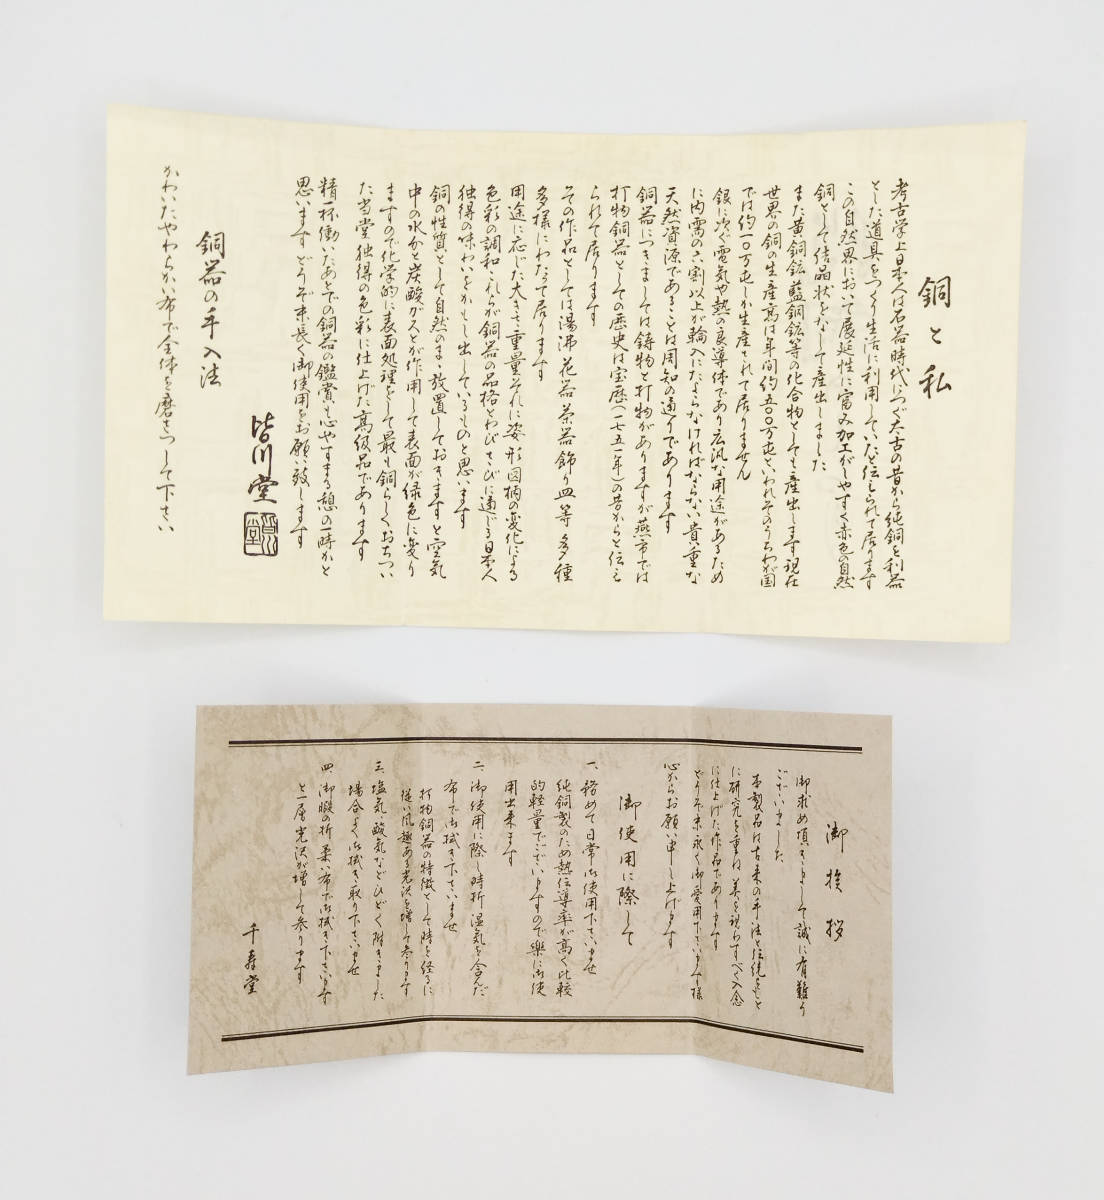 銅と私
考古学上日本人は石器時代につぐ太古の昔から純銅を利器
とした道具をつくり生活に利用していたと伝えられて居ります
この自然界において展延性に富み加工がしやすく赤色の自然
銅として結晶状をなして産出しました
また黄銅鉱藍銅鉱等の化合物としても産出します現在
世界の銅の生産高は年間約五〇〇万屯といわれそのうちわが国
では約一〇万屯しか生産されて居りません
銀に次ぐ電気や熱の良導体であり広汎な用途があるため
に内需の六割以上が輸入にたよらなければならない貴重な
天然資源であることは周知の通りであります
銅器につきましては鋳物と打物がありますが燕市では
打物銅器としての歴史は宝歴(一七五一年)の昔からと伝え
られて居ります
その作品としては湯沸花器茶器飾り皿等多種
多様にわたって居ります
用途に応じた大きさ重量それに姿形図柄の変化による
色彩の調和これらが銅器の品格とわびさびに通じる日本人
独得の味わいをかもし出しているものと思います
銅の性質として自然のまゝ放置しておきますと空気
中の水分と炭酸ガスとが作用して表面が緑色に変り
ますので化学的に表面処理をして最も銅らしくおちつい
た当堂独得の色彩に仕上げた高級品であります
精一杯働いたあとでの銅器の鑑賞も心やすまる憩の一時かと
思います どうぞ末長く御使用をお願い致します
皆川堂
銅器の手入法
かわいたやわらかい布で全体を磨きつして下さい
御挨拶
御求め頂きまして誠に有難う
ございました
本製品は古来の手法と伝統をもと
に研究を重ね 美を現わすべく入念
に仕上げた作品であります
どうぞ末永く御愛用下さいます様
心からお願い申し上げます
御使用に際して
一、務めて日常御使用下さいませ
純銅製のため熱伝導率が高く比較
的軽量でございますので楽に御使
用出来ます
二、御使用に際し時折湿気を含んだ
布でお拭き下さいませ
打物銅器の特徴として時を経るに
従い風趣ある光沢を増して参ります
三、塩気、酸気などひどく附きました
場合よくお拭き取り下さいませ
四、御暇の折柔い布でお拭き下さいます
と一層光沢が増して参ります
千寿堂